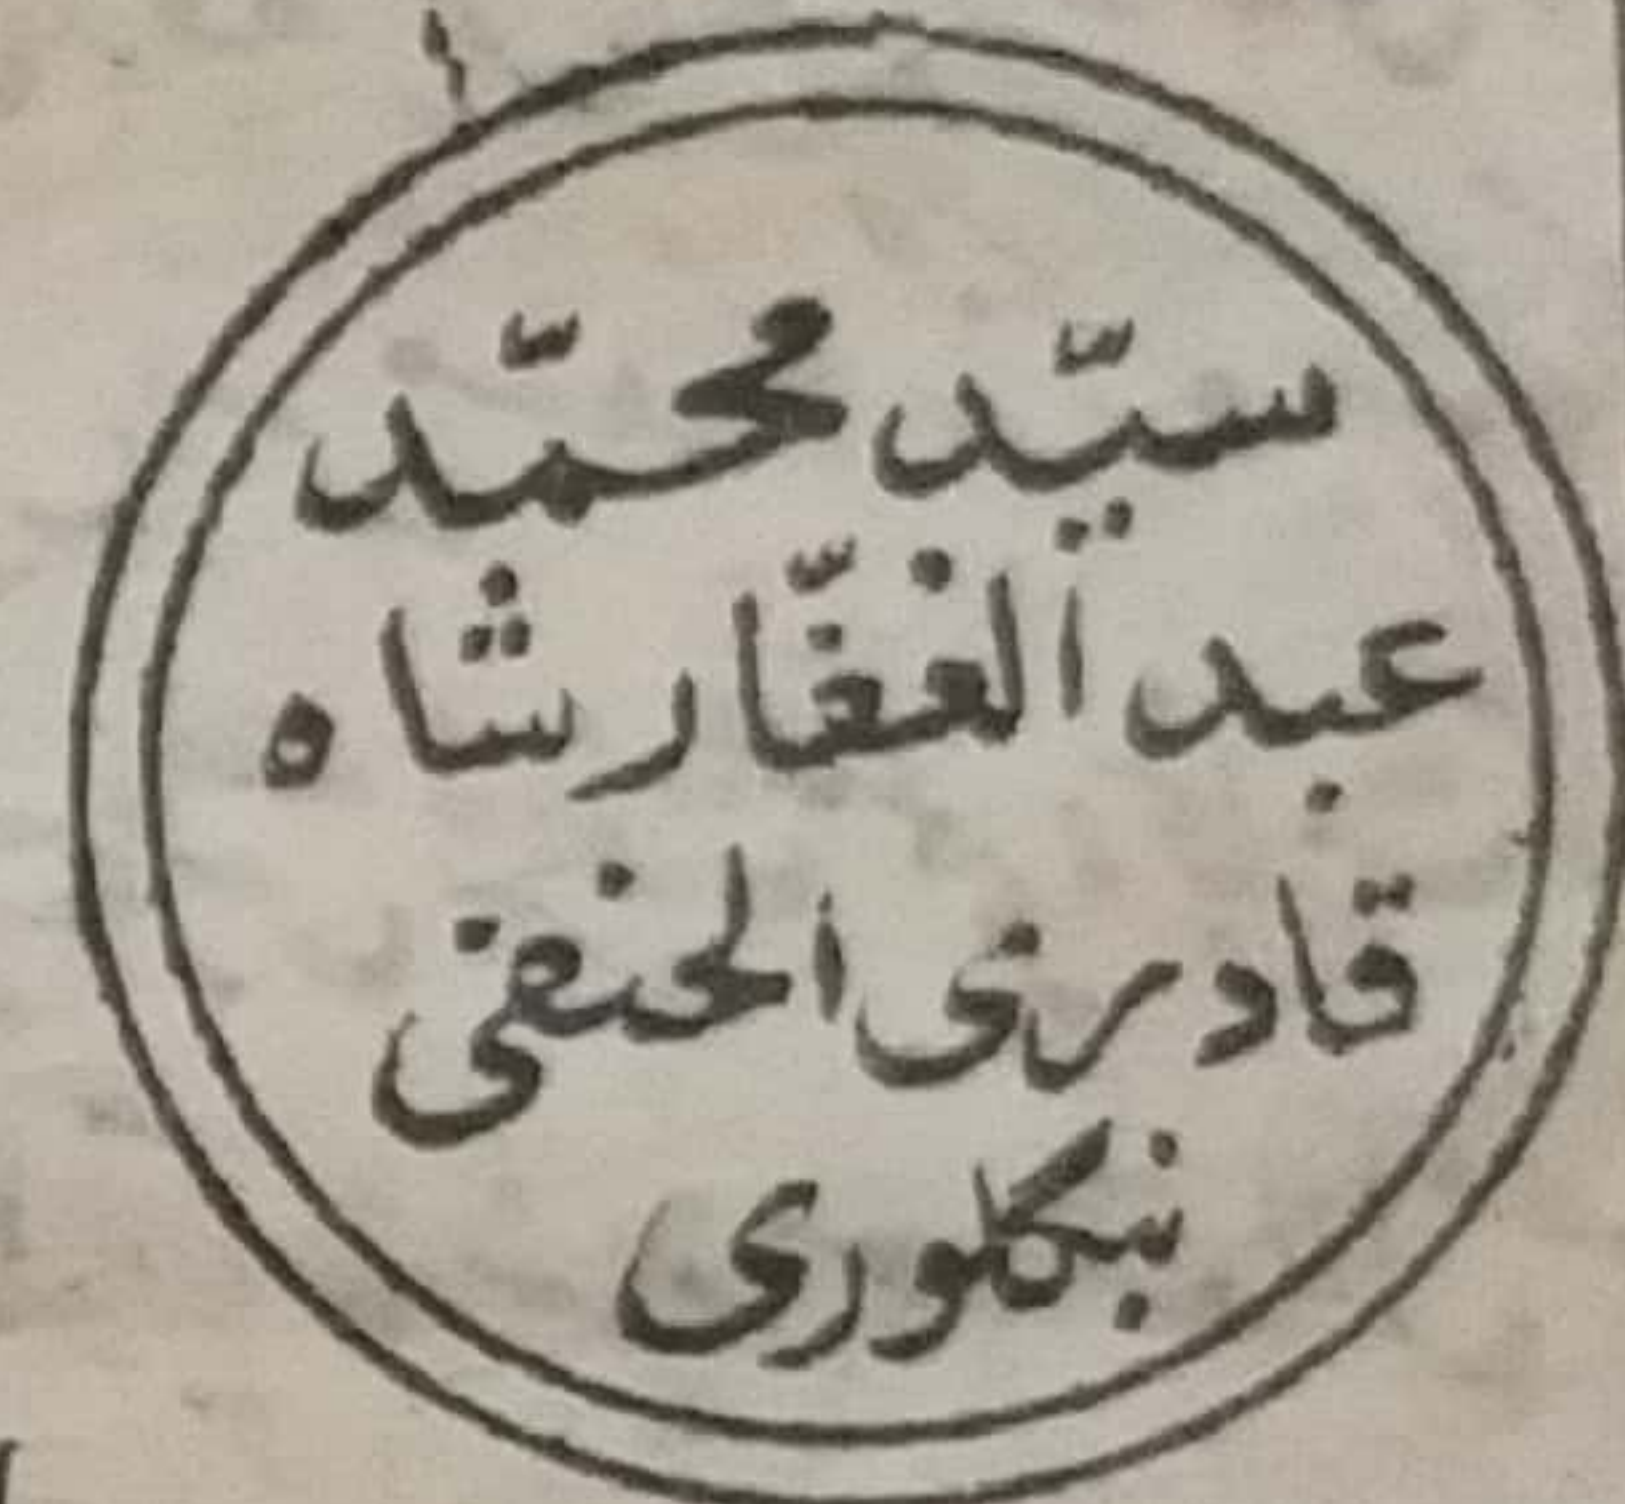 سیّد محمّد
عبد الغفّار شاہ
قادری الحنفی
بنگلوری